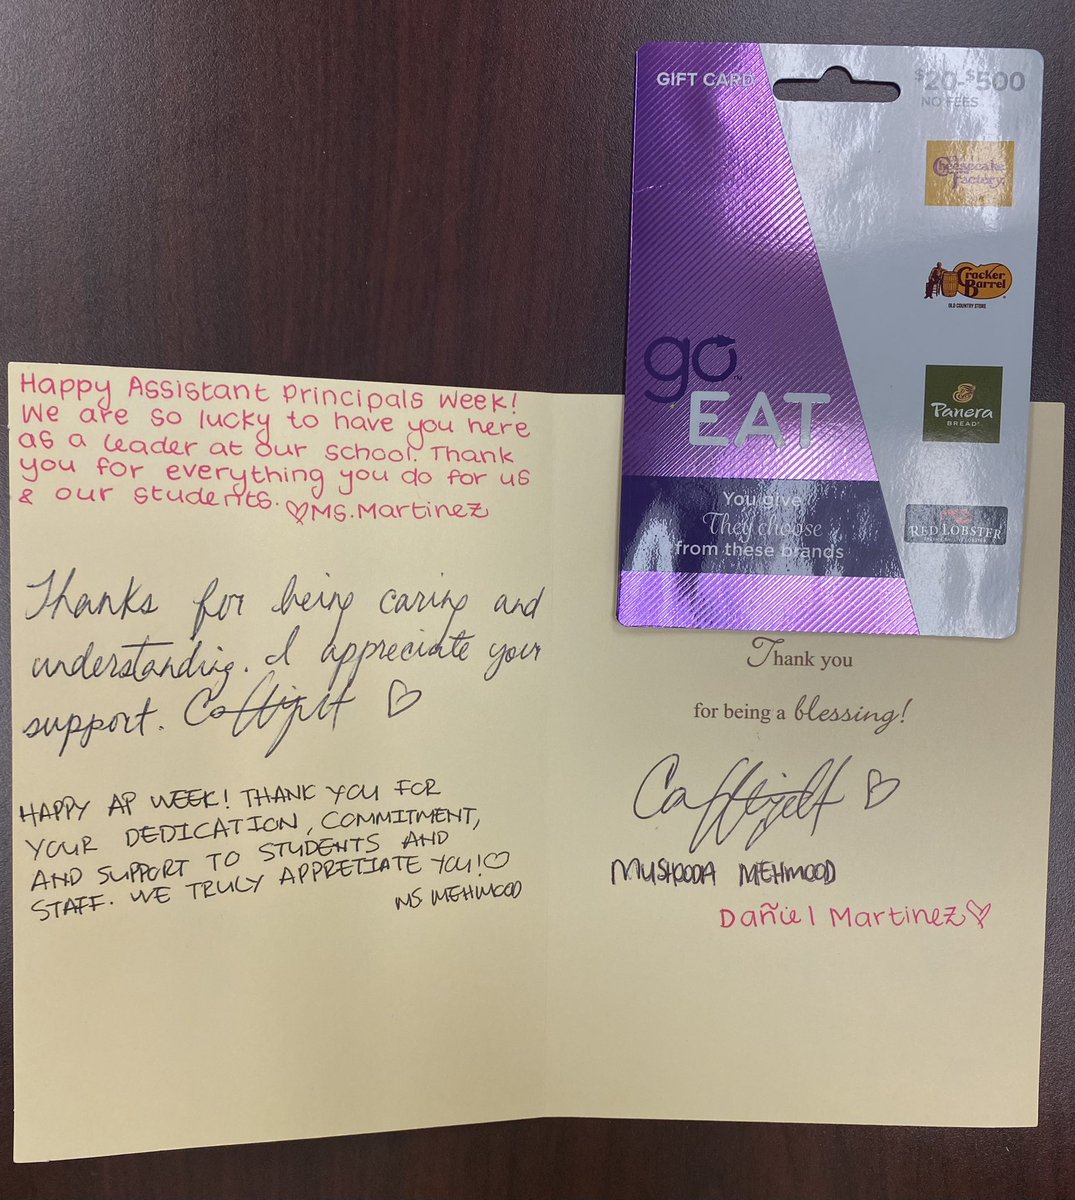 GIFT CARD
$20-$500
NO FEES
Cheesecake
Factory
Cracker
Barrel
OLD COUNTRY STORE
Panera
BREAD
RED LOBSTER
go
EAT
You give
They choose
from these brands
Happy Assistant Principals Week!
We are so lucky to have you here
as a leader at our school. Thank
you for everything you do for us
& our students. ♡Ms. Martinez
Thanks for being caring and
understanding. I appreciate your
support.
HAPPY AP WEEK! THANK YOU FOR
YOUR DEDICATION, COMMITMENT,
AND SUPPORT TO STUDENTS AND
STAFF. WE TRULY APPRETIATE YOU!♡
MS. MEHMOOD
Thank you
for being a blessing!
MEHMOOD
Martinez♡